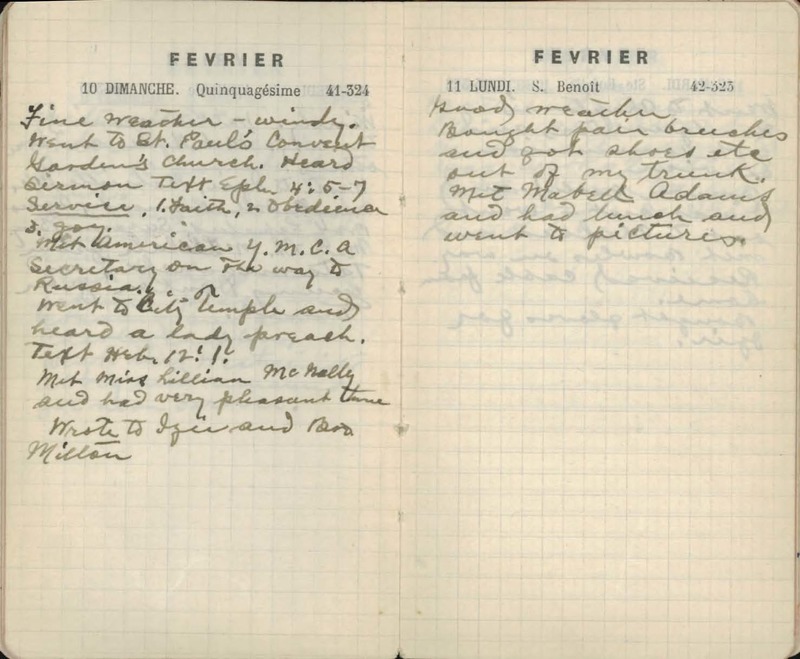 FEVRIER
10 DIMANCHE. Quinquagésime 41-324
Fine weather – windy.
Went to St. Paul's Convent
Garden's Church. Heard
Sermon Text Eph. 4: 5-7
Service. 1. Faith, 2. Obedience
3. Joy.
Met American Y.M.C.A
Secretary on the way to
Russia.
Went to City Temple and
heard a lady preach.
Text Heb. 12: 1.
Met Miss Lillian McNally
and had very pleasant time
Wrote to Izie and Bro
Milton
FEVRIER
11 LUNDI. S. Benoît 42-323
Good weather
Bought pair breeches
and got shoes etc
out of my trunk.
Met Mabell Adams
and had lunch and
went to pictures.